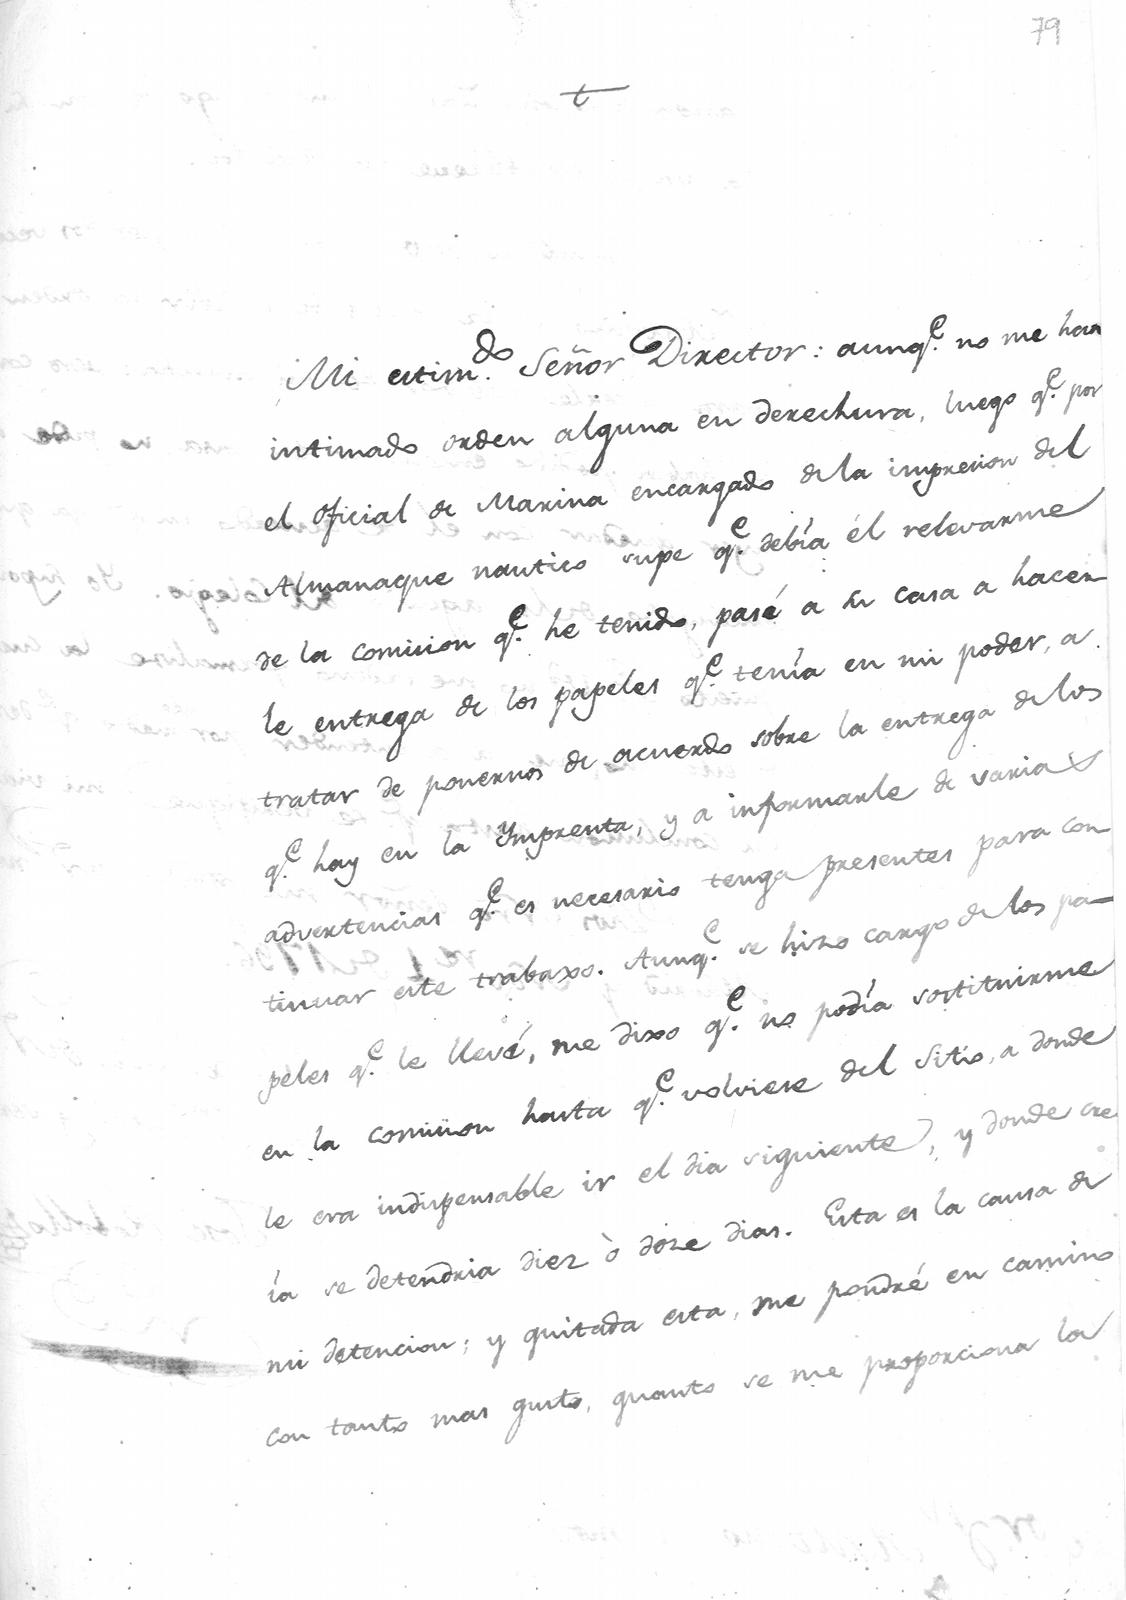 79
t
Mi estim.do Señor Director: aunq.e no me han
intimado orden alguna en derechura, luego q.e por
el Oficial de Marina encargado de la impresion del
Almanaque nautico supe q.e debía él relevarme
de la comision q.e he tenido, pasé a su casa a hacer
le entrega de los papeles q.e tenía en mi poder, a
tratar de ponernos de acuerdo sobre la entrega de los
q.e hay en la Imprenta, y a informarle de varias
advertencias q.e es necesario tenga presentes para con
tinuar este trabaxo. Aunq.e se hizo cargo de los pa-
peles q.e le llevé, me dixo q.e no podía sostituirme
en la comision hasta q.e volviese del Sitio, a donde
le era indispensable ir el dia siguiente, y donde cre
ía se detendria diez ò doze dias. Esta es la causa de
mi detencion; y quitada esta, me pondré en camino
con tanto mas gusto, quanto se me proporciona la